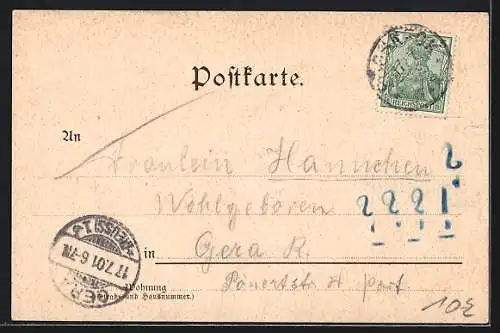 Postkarte.
An
Fräulein Hannchen
Wohlgeboren
in Gera R.
Wohnung
(Straße und Hausnummer.)
part.
GERA
17.7.01. 6-7N.
(REUSS) 1
2
2 2 2 1